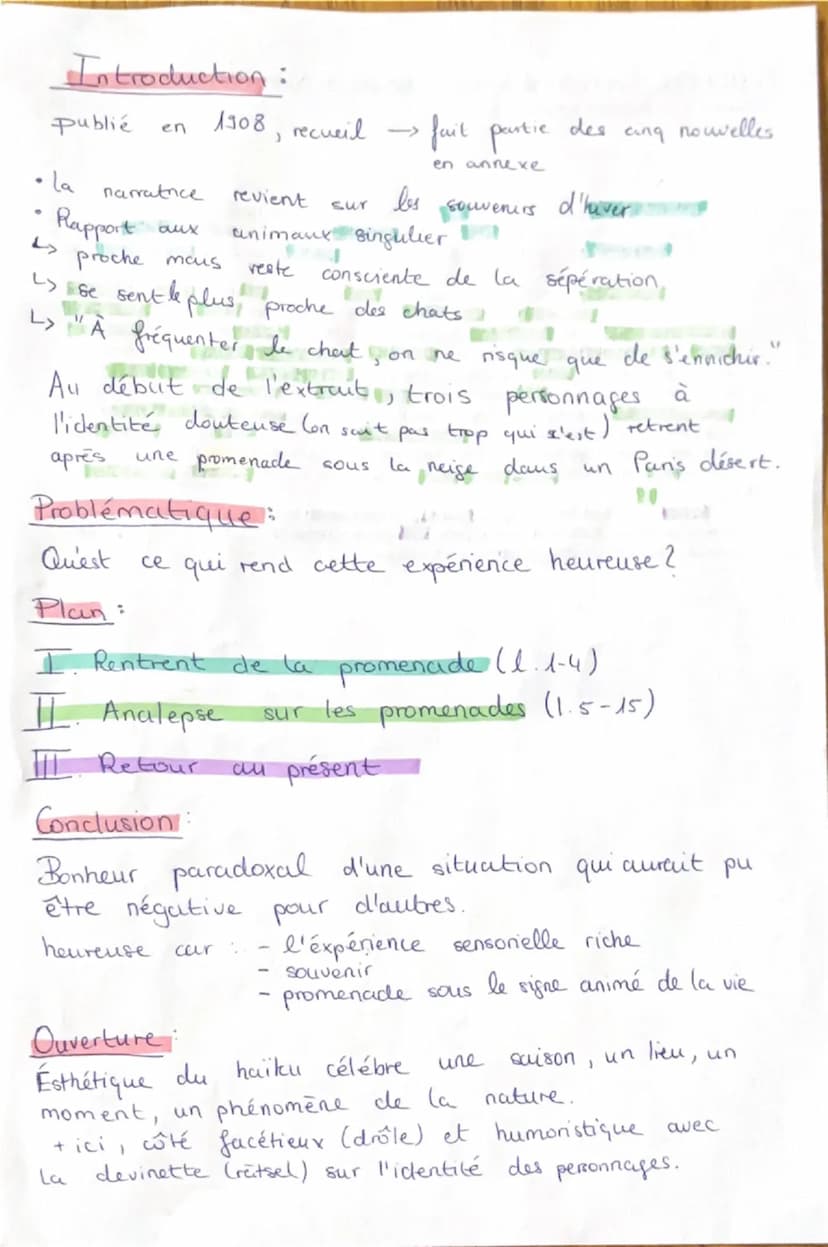 Introduction :
publié en 1908, recueil → fait partie des cinq nouvelles
en annexe
• la narratrice revient sur les souvenirs d'hiver
• Rapport aux animaux singulier
↳ proche mais reste consciente de la sépération
↳ se sent le plus proche des chats
↳ "À fréquenter le chat, on ne risque que de s'enrichir."
Au début de l'extrait, trois personnages à
l'identité douteuse (on sait pas trop qui s'est) retrent
après une promenade sous la neige dans un Paris désert.
Problématique :
Qu'est ce qui rend cette expérience heureuse ?
Plan :
I. Rentrent de la promenade (l. 1-4)
II. Analepse sur les promenades (l. 5-15)
III Retour au présent
Conclusion :
Bonheur paradoxal d'une situation qui aurait pu
être négative pour d'autres.
heureuse car : - l'éxpérience sensorielle riche
- souvenir
- promenade sous le signe animé de la vie
Ouverture :
Ésthétique du haïku célébre une saison, un lieu, un
moment, un phénomène de la nature.
+ ici, côté facétieux (drôle) et humoristique avec
la devinette (rätsel) sur l'identité des personnages.